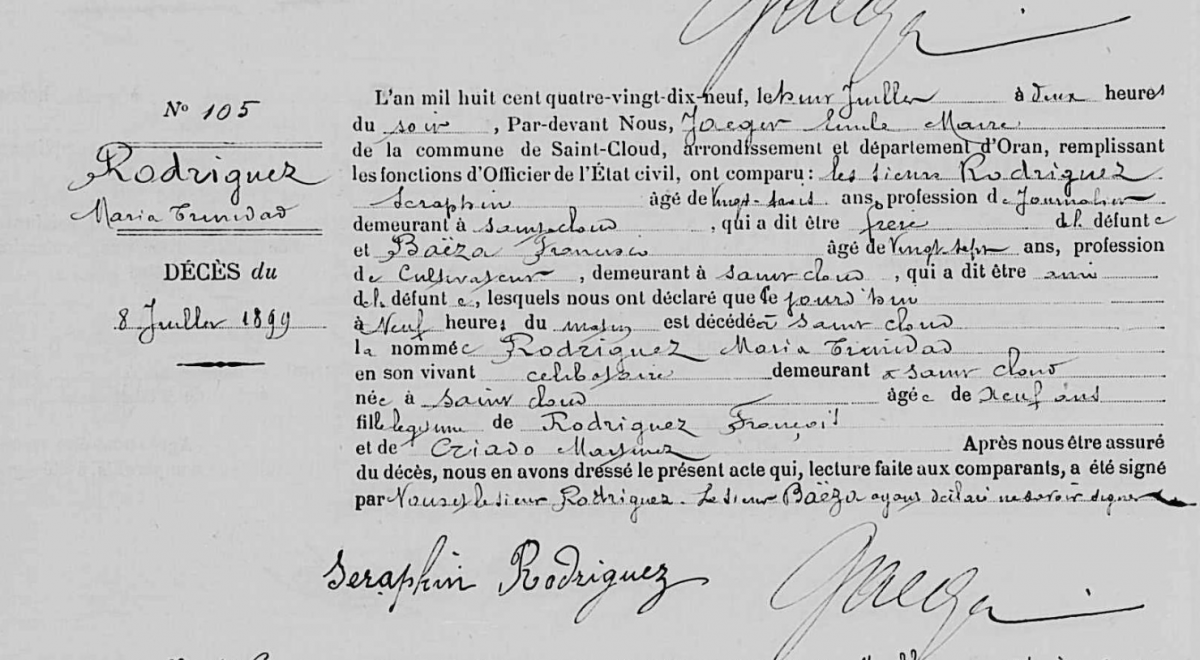 Jaeger
N° 105
Rodriguez
Maria Trinidad
DÉCÈS du
8 Juillet 1899
L'an mil huit cent quatre-vingt-dix-neuf, le huit Juillet à deux heures
du soir, Par-devant Nous, Jaeger Emile Maire
de la commune de Saint-Cloud, arrondissement et département d'Oran, remplissant
les fonctions d'Officier de l'État civil, ont comparu : les sieurs Rodriguez
Seraphin âgé de vingt-six ans, profession de Journalier
demeurant à Saint-cloud, qui a dit être frère de la défunte
et Baëza Francisco âgé de vingt sept ans, profession
de Cultivateur, demeurant à Saint cloud, qui a dit être ami
de la défunte, lesquels nous ont déclaré que ce jourd'hui
à Neuf heures du matin est décédée à Saint cloud
la nommée Rodriguez Maria Trinidad
en son vivant celibataire demeurant à Saint cloud
née à Saint cloud âgée de Neuf ans
fille legitime de Rodriguez François
et de Criado Après nous être assuré
du décès, nous en avons dressé le présent acte qui, lecture faite aux comparants, a été signé
par Nous et le sieur Rodriguez. Le sieur Baëza ayant déclaré ne savoir signer
Seraphin Rodriguez
Jaeger